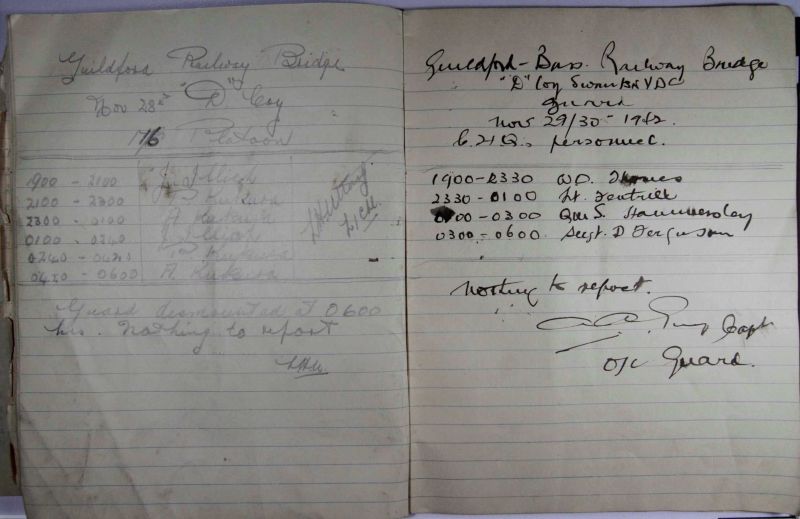 Guildford Railway Bridge
Nov 28th "D" Coy
16 Platoon
1900 - 2100
2100 - 2300 Kukura
2300 - 0100 A Kukura
0100 - 0240
0240 - 0420 Kukura
0420 - 0600 A. Kukura
Guard dismounted at 0600
hrs. Nothing to report
Guildford - Bass. Railway Bridge
"D" Coy Swan Bn VDC
Guard
Nov 29/30 - 1942.
C.H.Q. personnel.
1900 - 2330 WO.
2330 - 0100 Lt.
0100 - 0300 QMS. Hammersley
0300 - 0600 Sergt. D Ferguson
Nothing to report.
Capt
O/C Guard.